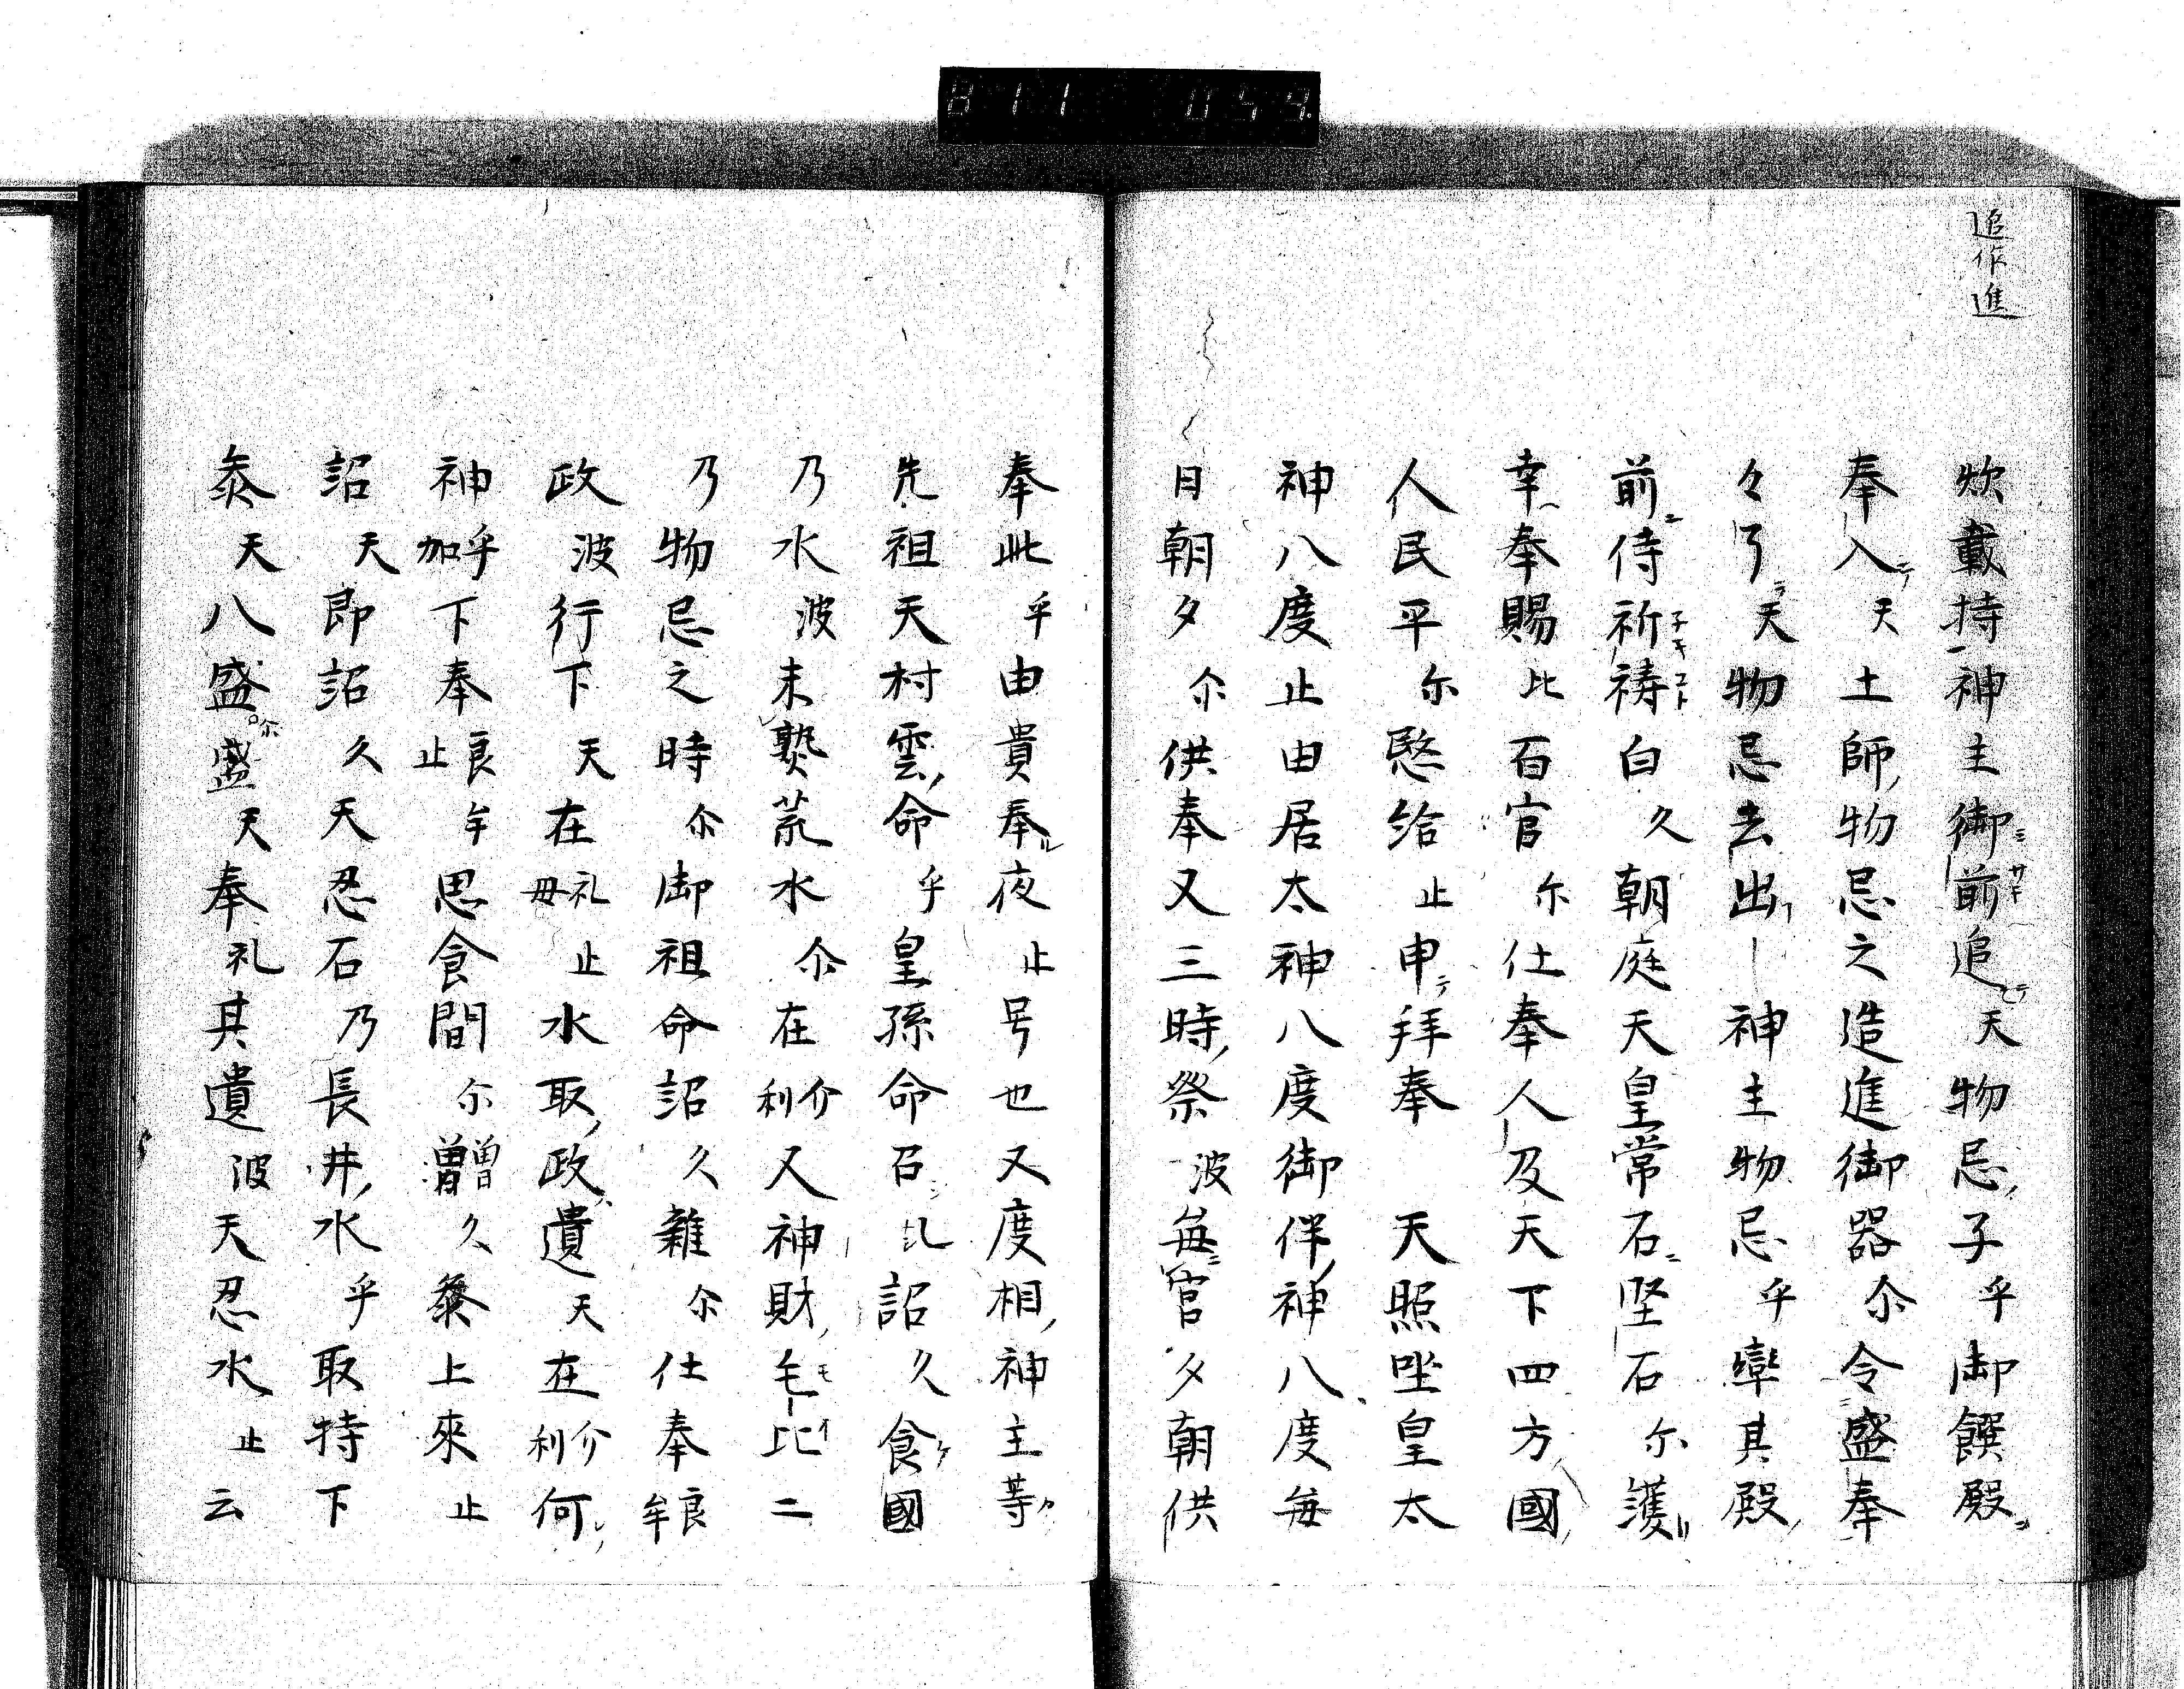 追作進
炊載持神主御前追天物忌子乎御饌殿
奉入天土師物忌之造進御器尓令盛奉
々了天物忌去出神主物忌乎率其殿
前侍祈祷白久朝庭天皇常石堅石尓護
幸奉賜比百官尓仕奉人及天下四方國
人民平尓愍給止申拜奉　天照坐皇太
神八度止由居太神八度御伴神八度毎
日朝夕尓供奉又三時祭波毎官夕朝供
奉此乎由貴奉夜止号也又度相神主等
先祖天村雲命乎皇孫命召詔久食國
乃水波未熟荒水尓在介利又神財毛比二
乃物忌之時尓御祖命詔久雜尓仕奉良牟
政波行下天在礼毋止水取政遺天在介利何
神乎加下奉良牟止思食間尓曽久參上來止
詔天即詔久天忍石乃長井水乎取持下
參天八盛尓盛天奉礼其遺波天忍水止云